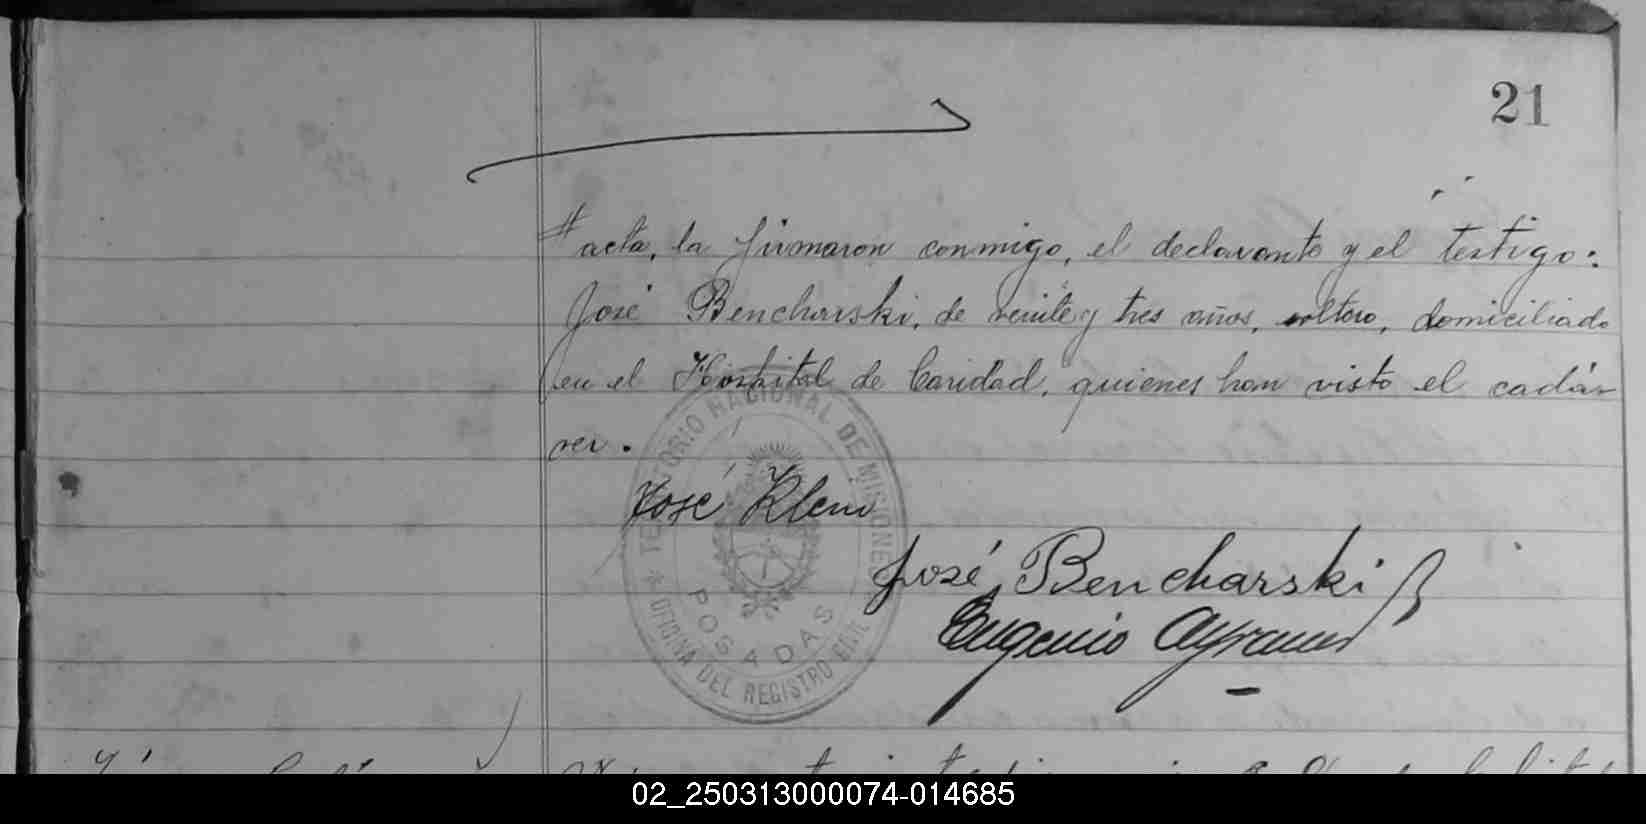 21
acta, la firmaron conmigo, el declarante y el testigo:
José Bencharski, de veinte y tres años, soltero, domiciliado
en el Hospital de Caridad, quienes han visto el cadá-
ver.
José Klein
José Bencharski
Eugenio
TERRITORIO NACIONAL DE MISIONES
POSADAS
OFICINA DEL REGISTRO CIVIL
02_250313000074-014685